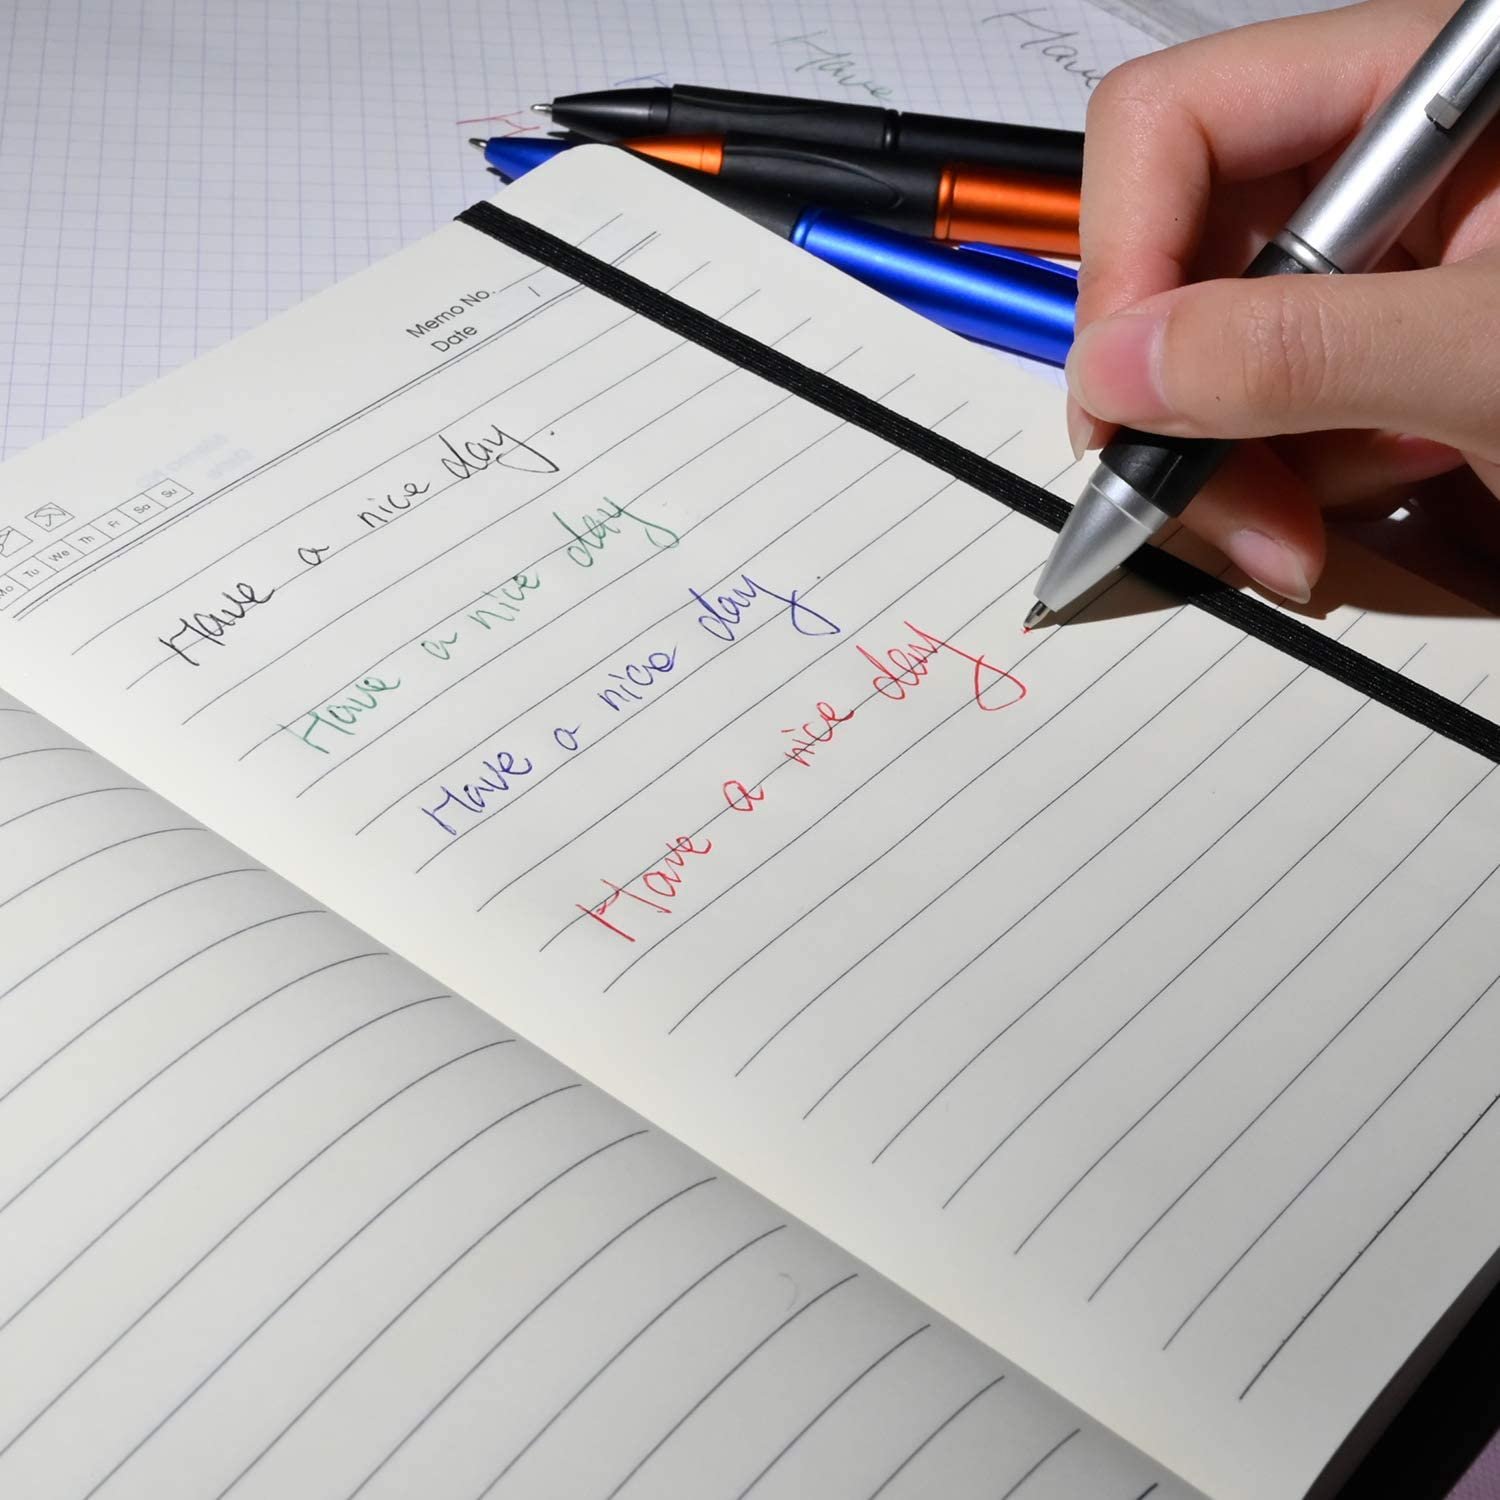 Have
Have
H
Memo No. /
Date
Mo Tu We Th Fr Sa Su
Have a nice day.
Have a nice day
Have a nice day.
Have a nice day.